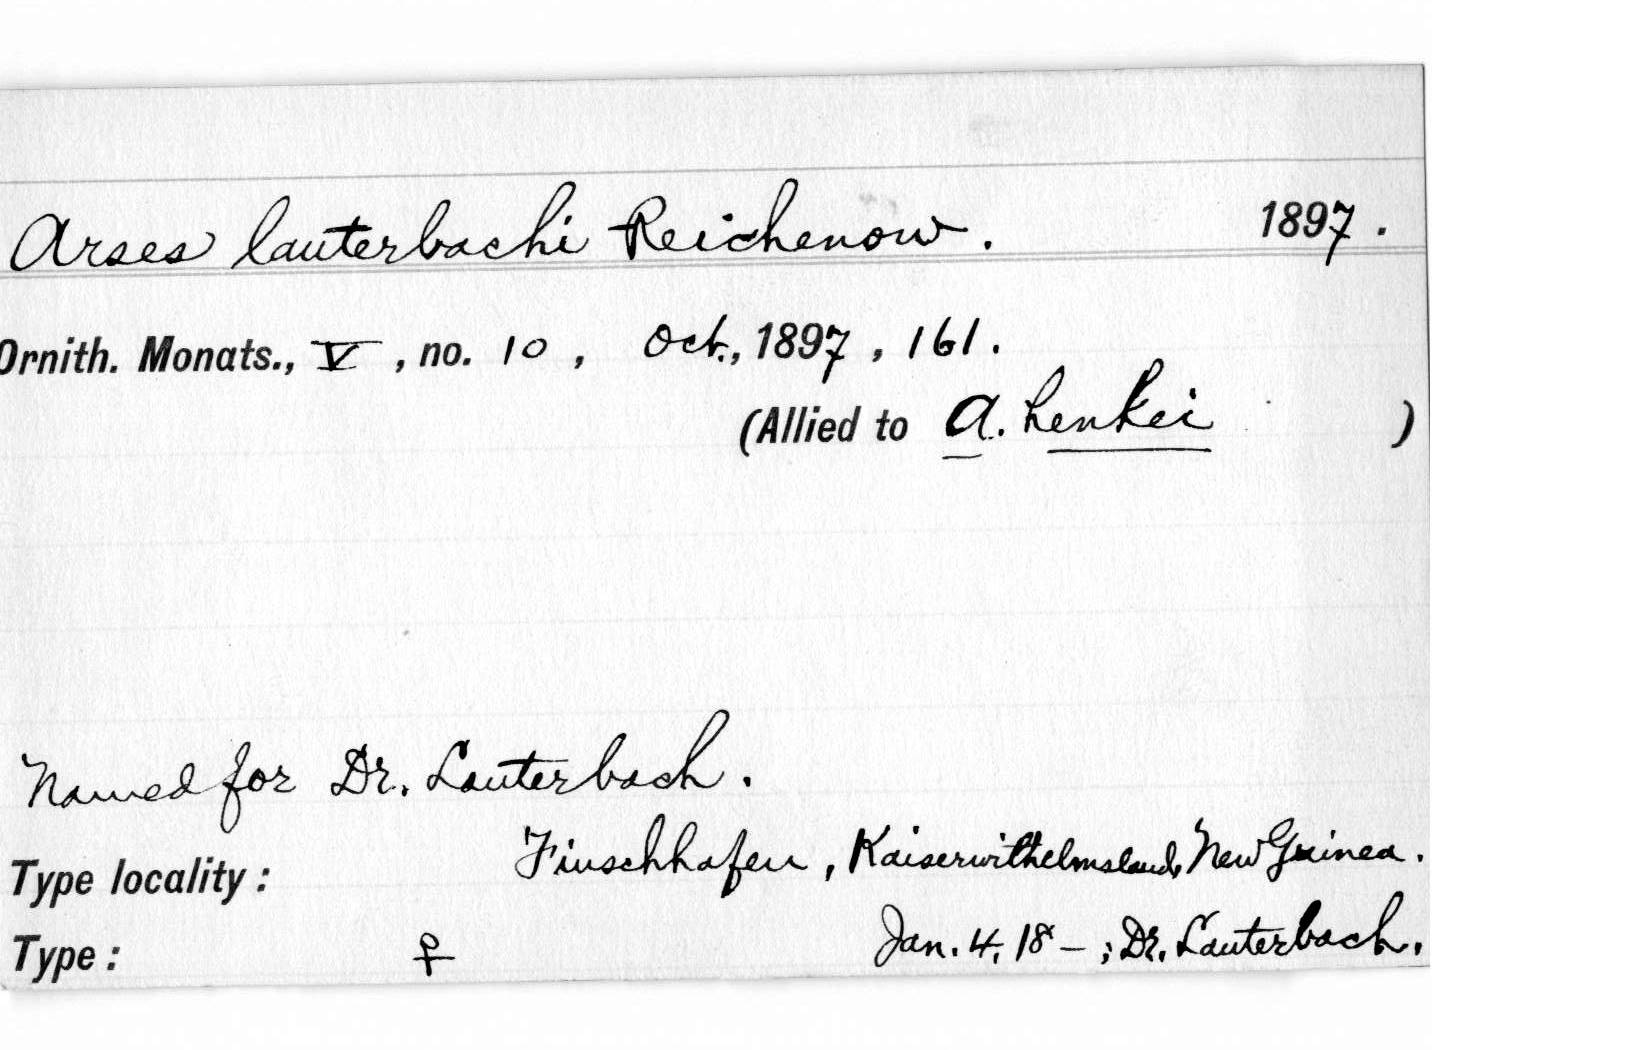 Arses lauterbachi Reichenow. 1897.
Ornith. Monats., V, no. 10, Oct., 1897, 161.
(Allied to A. henkei )
Named for Dr. Lauterbach.
Type locality: Finschhafen, Kaiserwilhelmsland, New Guinea.
Type: ♀ Jan. 4, 18–; Dr. Lauterbach.